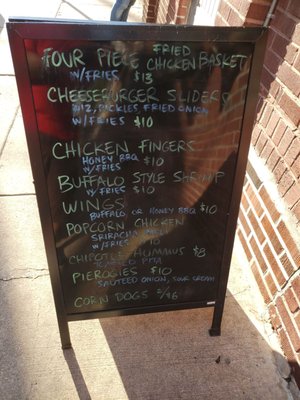 FOUR PIECE FRIED CHICKEN BASKET
W/FRIES $13
CHEESEBURGER SLIDERS
PICKLES, FRIED ONION
W/FRIES $10
CHICKEN FINGERS
HONEY BBQ $10
W/FRIES
BUFFALO STYLE SHRIMP
W/FRIES $10
WINGS
BUFFALO OR HONEY BBQ $10
POPCORN CHICKEN
SRIRACHA
W/FRIES $10
CHIPOTLE HUMMUS $8
PITA
PIEROGIES $10
SAUTEED ONION, SOUR CREAM
CORN DOGS 2/$6